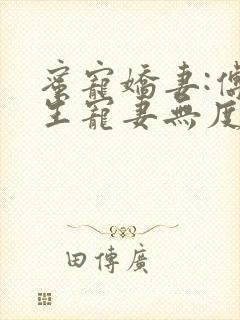 蜜寵嬌妻:傅
生寵妻無度
田傳廣